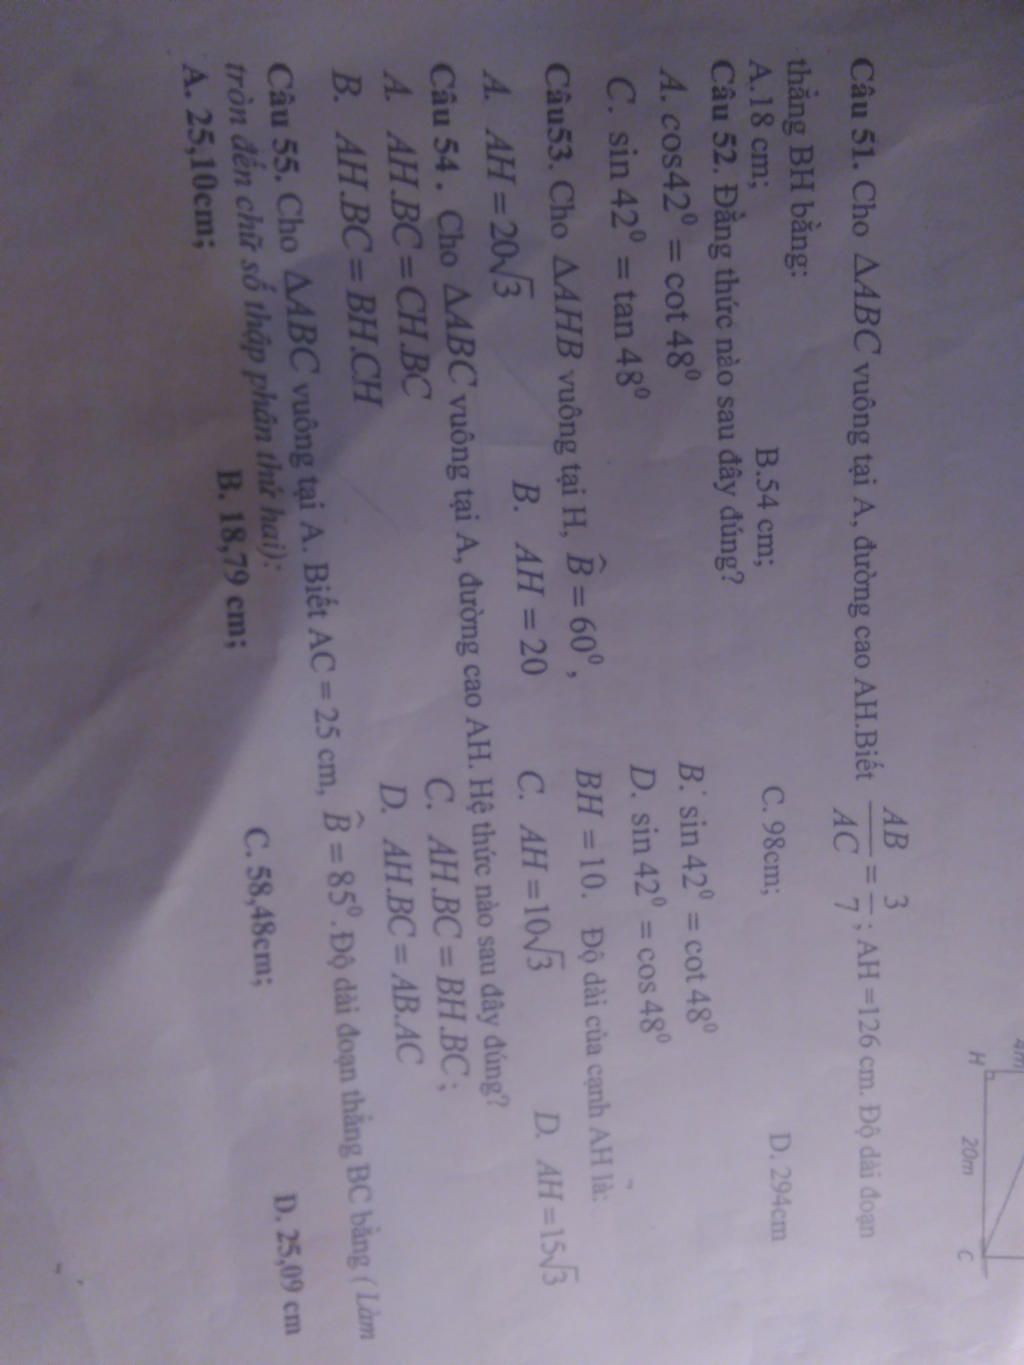 4m
H
20m
C
Câu 51. Cho ΔABC vuông tại A, đường cao AH.Biết AB/AC = 3/7; AH =126 cm. Độ dài đoạn
thẳng BH bằng:
A.18 cm; B.54 cm; C. 98cm; D. 294cm
Câu 52. Đẳng thức nào sau đây đúng?
A. cos42⁰ = cot 48⁰ B. sin 42⁰ = cot 48⁰
C. sin 42⁰ = tan 48⁰ D. sin 42⁰ = cos 48⁰
Câu53. Cho ΔAHB vuông tại H, B̂ = 60⁰, BH = 10. Độ dài của cạnh AH là:
A. AH = 20√3 B. AH = 20 C. AH = 10√3 D. AH = 15√3
Câu 54 . Cho ΔABC vuông tại A, đường cao AH. Hệ thức nào sau đây đúng?
A. AH.BC = CH.BC C. AH.BC = BH.BC ;
B. AH.BC = BH.CH D. AH.BC = AB.AC
Câu 55. Cho ΔABC vuông tại A. Biết AC = 25 cm, B̂ = 85⁰. Độ dài đoạn thẳng BC bằng ( Làm
tròn đến chữ số thập phân thứ hai):
A. 25,10cm; B. 18,79 cm; C. 58,48cm; D. 25,09 cm